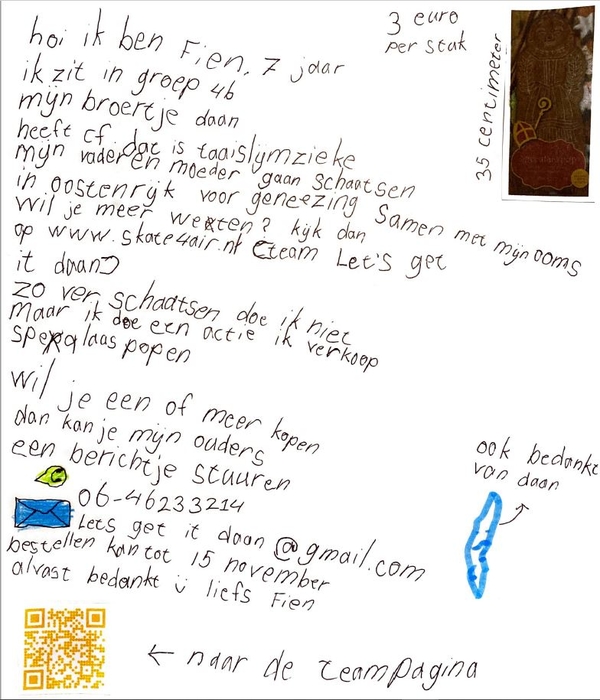 hoi ik ben Fien, 7 jaar
ik zit in groep 4b
mijn broertje daan
heeft cf dat is taaislymzieke
mijn vader en moeder gaan schaatsen
in oostenrijk voor geneezing samen met mijn ooms
wil je meer weeten? kijk dan
op www.skate4air.nl (team Let's get
it daan)
zo ver schaatsen doe ik niet
maar ik doe een actie ik verkoop
speqlaas popen
wil je een of meer kopen
dan kan je mijn ouders
een berichtje stuuren
06-46233214
Lets get it daan @gmail.com
bestellen kan tot 15 november
alvast bedankt ü liefs Fien
← naar de teampagina
3 euro
per stuk
35 centimeter
ook bedankt
van daan